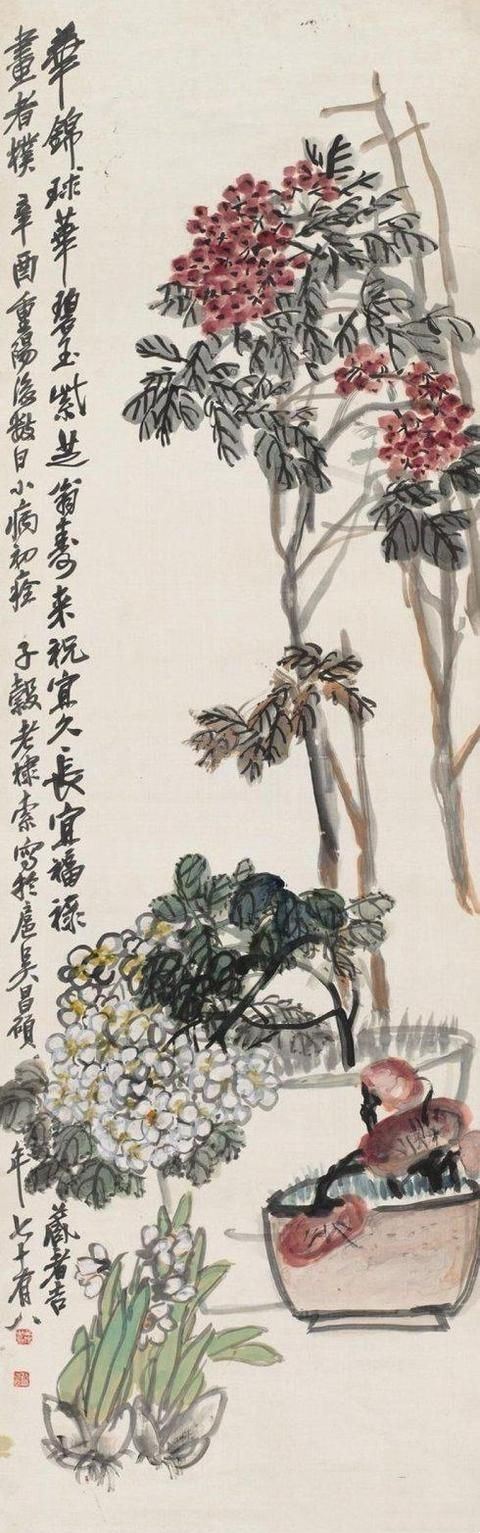 華錦球華碧玉紫芝翁壽来祝宜久長宜福祿藏者吉
畫者樸 辛酉重陽後數日小病初痊 子穀老棣索寫於扈吳昌碩年七十有八